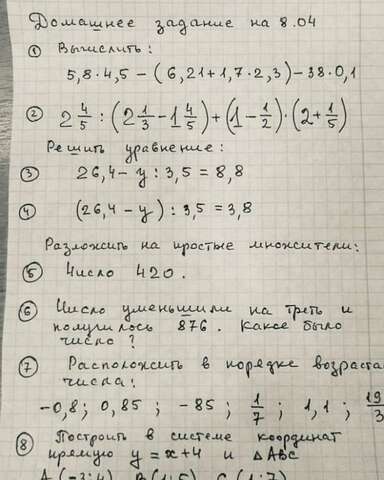 Домашнее задание на 8.04
① Вычислить:
5,8·4,5 – (6,21+1,7·2,3)–38·0,1
② 2 4/5 : (2 1/3 – 1 4/5) + (1 – 1/2)·(2 + 1/5)
Решить уравнение:
③ 26,4 – y : 3,5 = 8,8
④ (26,4 – y) : 3,5 = 3,8
Разложить на простые множители:
⑤ Число 420.
⑥ Число уменьшили на треть и
получилось 876. Какое было
число?
⑦ Расположить в порядке возраста
числа:
-0,8; 0,85; -85; 1/7; 1,1; 19/3
⑧ Построить в системе координат
прямую y = x+4 и △ABC
A (-3;4) B(1;5) C(1;7)